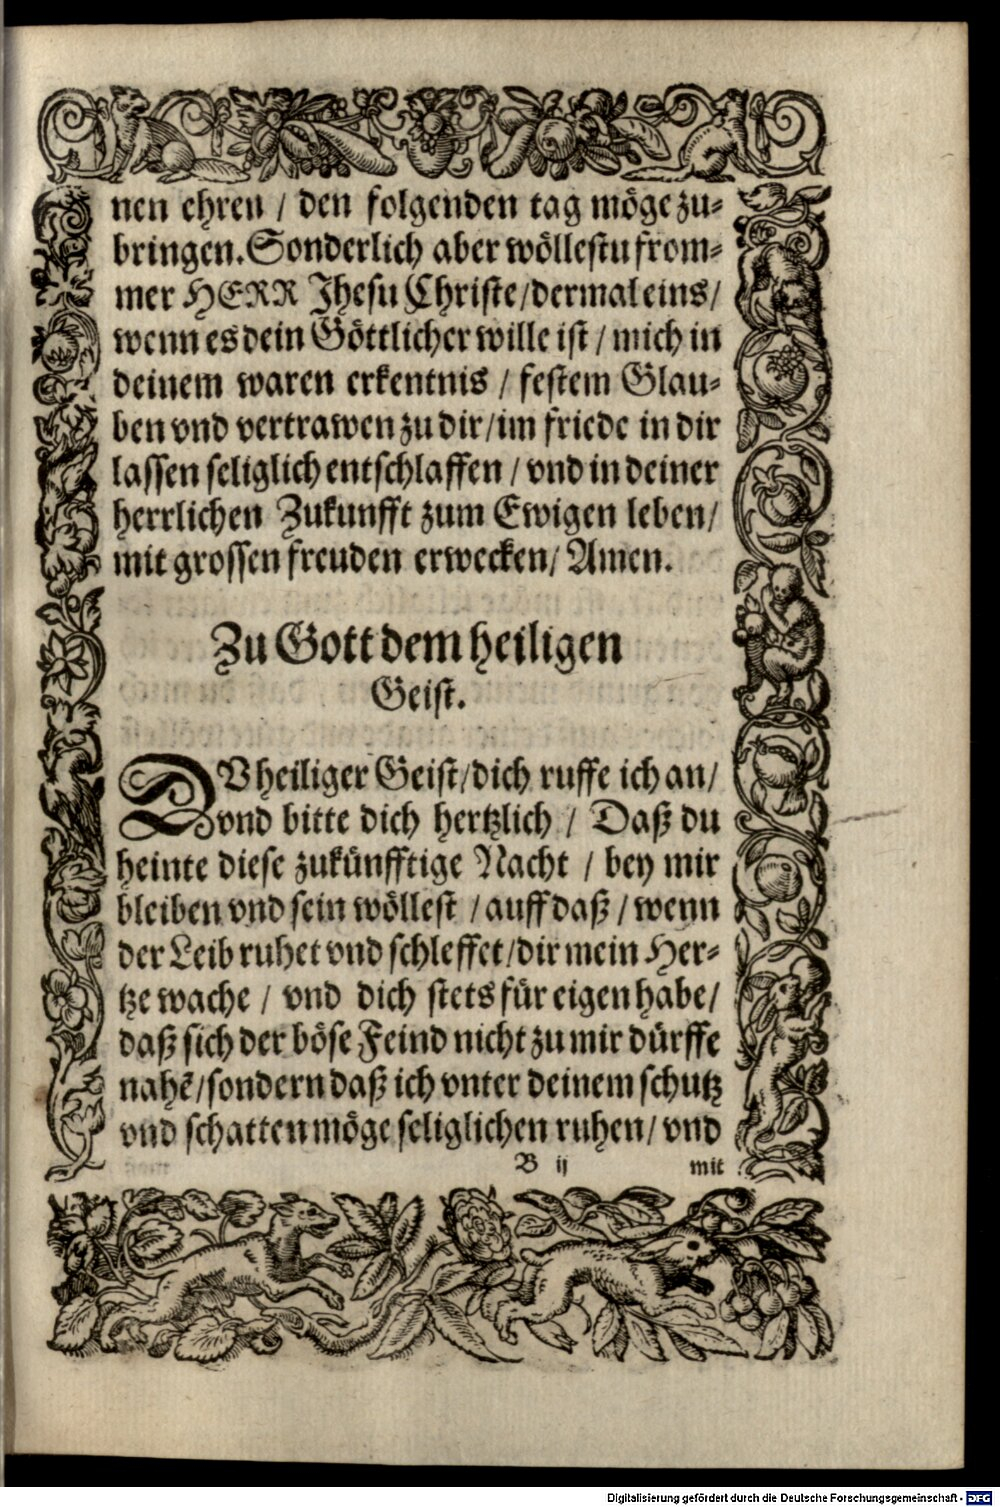 nen ehren / den folgenden tag möge zu⸗
bringen. Sonderlich aber wöllestu from⸗
mer HERR Jhesu Christe / dermal eins /
wenn es dein Göttlicher wille ist / mich in
deinem waren erkentnis / festem Glau⸗
ben vnd vertrawen zu dir / im friede in dir
lassen seliglich entschlaffen / vnd in deiner
herrlichen Zukunfft zum Ewigen leben /
mit grossen freuden erwecken / Amen.
Zu Gott dem heiligen
Geist.
DV heiliger Geist / dich ruffe ich an /
vnd bitte dich hertzlich / Daß du
heinte diese zukünfftige Nacht / bey mir
bleiben vnd sein wöllest / auff daß / wenn
der Leib ruhet vnd schleffet / dir mein Her⸗
tze wache / vnd dich stets für eigen habe /
daß sich der böse Feind nicht zu mir dürffe
nahē / sondern daß ich vnter deinem schutz
vnd schatten möge seliglichen ruhen / vnd
B ij mit
Digitalisierung gefördert durch die Deutsche Forschungsgemeinschaft - DFG